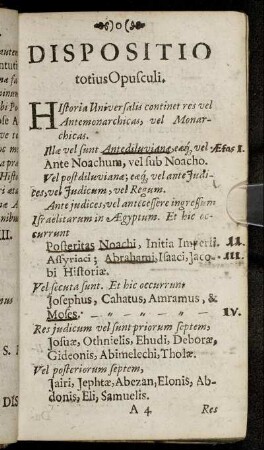 DISPOSITIO
totius Opusculi.
HIstoria Universalis continet res vel
Antemonarchicas, vel Monar-
chicas.
Illæ vel sunt Antediluvianæ, eæq́, vel Ætas I.
Ante Noachum, vel sub Noacho.
Vel postdiluvianæ; eæq́, vel ante Judi-
ces, vel Judicum, vel Regum.
Ante judices, vel antecessere ingressum
Israëlitarum in Ægyptum. Et hic oc-
currunt
Posteritas Noachi, Initia Imperii II.
Assyriaci; Abrahami, Isaaci, Jaco- III.
bi Historiæ.
Vel secuta sunt. Et hic occurrunt
Josephus, Cahatus, Amramus, &
Moses. - - - - - IV.
Res judicum vel sunt priorum septem,
Josuæ, Othnielis, Ehudi, Deboræ,
Gideonis, Abimelechi, Tholæ.
Vel posteriorum septem,
Jairi, Jephtæ, Abezan, Elonis, Ab-
donis, Eli, Samuelis.
A 4 Res